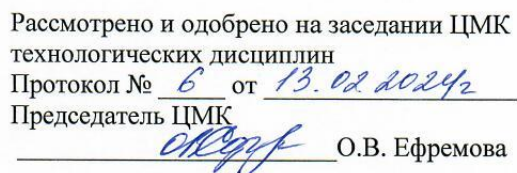 Рассмотрено и одобрено на заседании ЦМК
технологических дисциплин
Протокол № 6 от 13.02.2024г
Председатель ЦМК
О.В. Ефремова